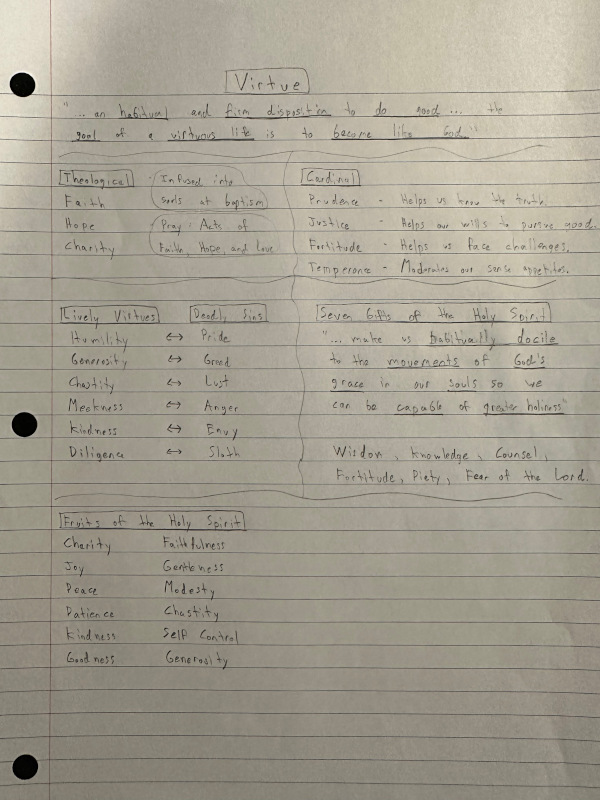 Virtue
"... an habitual and firm disposition to do good... the
goal of a virtuous life is to become like God."
Theological - Infused into
souls at baptism
Faith
Hope
Charity
Pray: Acts of
Faith, Hope, and Love
Cardinal
Prudence - Helps us know the truth.
Justice - Helps our wills to pursue good.
Fortitude - Helps us face challenges.
Temperance - Moderates our sense appetites.
Lively Virtues Deadly Sins
Humility ↔ Pride
Generosity ↔ Greed
Chastity ↔ Lust
Meekness ↔ Anger
Kindness ↔ Envy
Diligence ↔ Sloth
Seven Gifts of the Holy Spirit
"... make us habitually docile
to the movements of God's
grace in our souls so we
can be capable of greater holiness."
Wisdom, Knowledge, Counsel,
Fortitude, Piety, Fear of the Lord.
Fruits of the Holy Spirit
Charity Faithfulness
Joy Gentleness
Peace Modesty
Patience Chastity
Kindness Self Control
Goodness Generosity